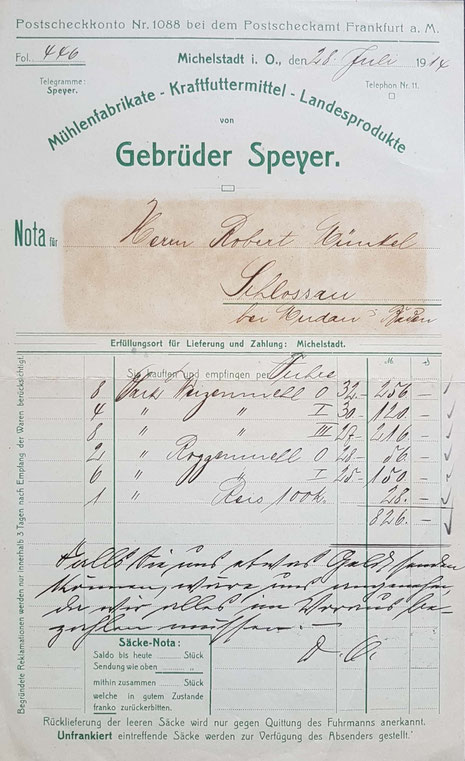 Postscheckkonto Nr. 1088 bei dem Postscheckamt Frankfurt a. M.
Fol. 446
Michelstadt i. O., den 28. Juli 1914
Telegramme:
Speyer.
Telephon Nr. 11.
Mühlenfabrikate - Kraftfuttermittel - Landesprodukte
von
Gebrüder Speyer.
Nota für Herrn Robert Künkel
Schlossau
bei Mudau Baden
Erfüllungsort für Lieferung und Zahlung: Michelstadt.
Sie kauften und empfingen per Fuhre
8 Sack Weizenmehl 0 32.- 256 -
4 " " I 30.- 120 -
8 " " III 27.- 216 -
2 " Roggenmehl 0 28.- 56 -
6 " " I 25.- 150 -
1 " Reis 100k. 28. -
826. -
Falls Sie uns etwas Geld senden
können, wäre uns angenehm
da wir alles im Voraus be-
zahlen müssen.
D. O.
Säcke-Nota:
Saldo bis heute Stück
Sendung wie oben "
mithin zusammen Stück
welche in gutem Zustande
franko zurückerbitten.
Begründete Reklamationen werden nur innerhalb 3 Tagen nach Empfang der Waren berücksichtigt.
Rücklieferung der leeren Säcke wird nur gegen Quittung des Fuhrmanns anerkannt.
Unfrankiert eintreffende Säcke werden zur Verfügung des Absenders gestellt.